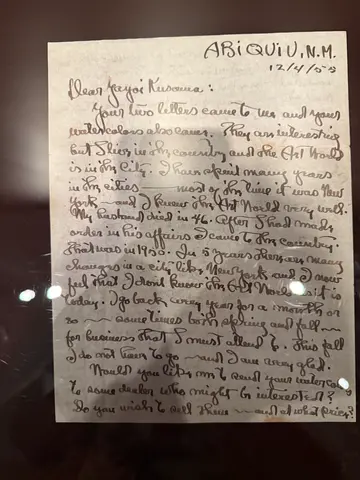 ABIQUIU, N.M.
12/4/55
Dear Yayoi Kusama:
Your two letters came to me and your
watercolors also came. They are interesting
but I live in the country and the Art World
is in the City. I have spent many years
in the cities — most of the time it was New
York — and I knew the Art World very well.
My husband died in '46. After I had made
order in his affairs I came to the country.
That was in 1950. In 5 years there are many
changes in a city like New York and I now
feel that I dont know the Art World as it is
today. I go back every year for a month or
so — sometimes both spring and fall —
for business that I must attend to. This fall
I do not have to go — and I am very glad.
Would you like me to send your watercolors
to some dealer who might be interested?
Do you wish to sell them — and at what price?